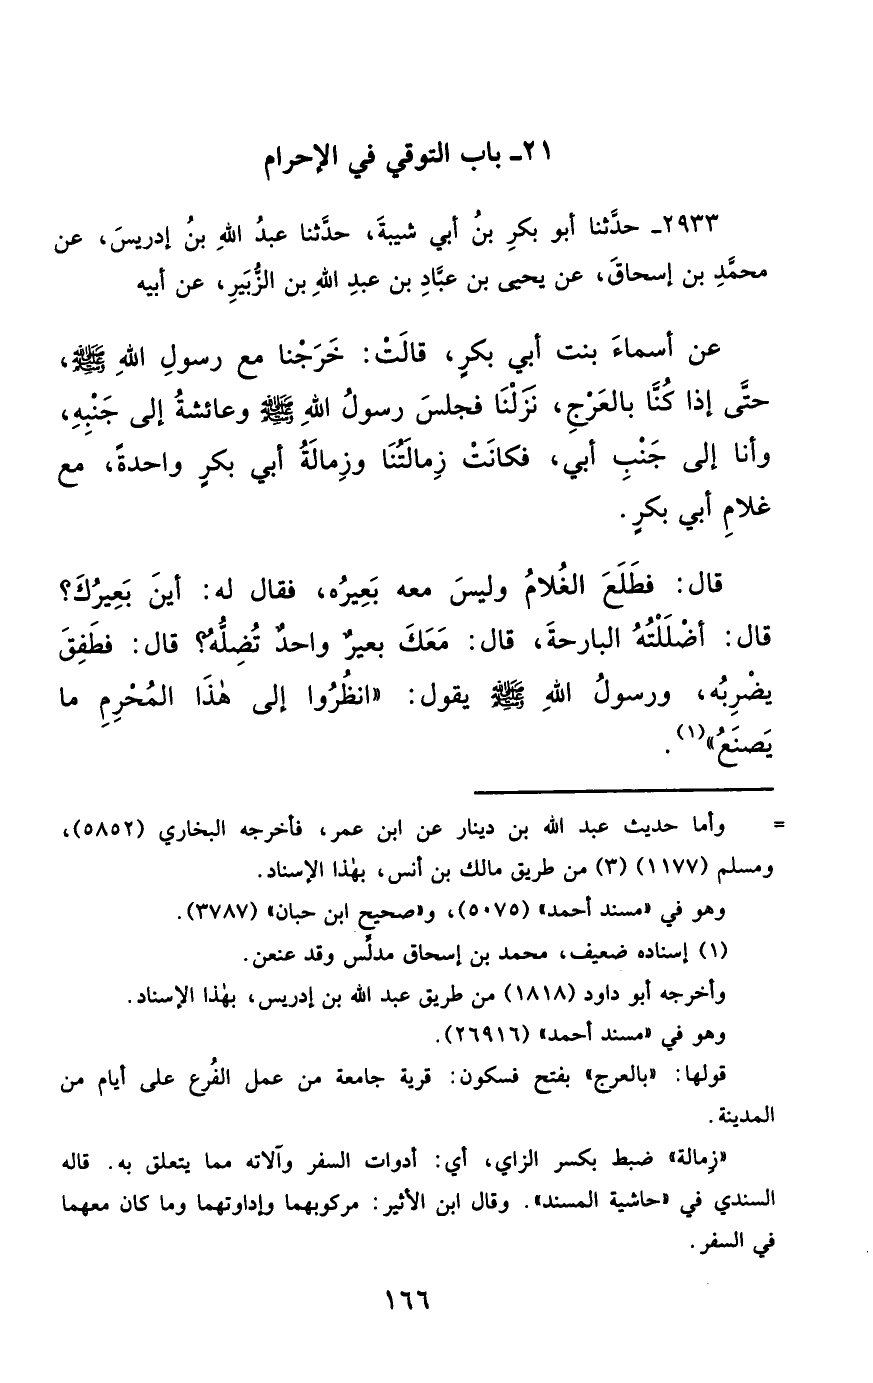 ٢١ـ باب التوقي في الإحرام
٢٩٣٣ـ حدَّثنا أبو بكرِ بنُ أبي شيبةَ، حدَّثنا عبدُ اللهِ بنُ إدريسَ، عن
محمَّدِ بن إسحاقَ، عن يحيى بن عبَّادِ بن عبدِ اللهِ بن الزُّبَيرِ، عن أبيه
عن أسماءَ بنت أبي بكرٍ، قالَتْ: خَرَجْنا مع رسولِ اللهِ ﷺ،
حتَّى إذا كُنَّا بالعَرْجِ، نَزَلْنَا فجلسَ رسولُ اللهِ ﷺ وعائشةُ إلى جَنْبِهِ،
وأنا إلى جَنْبِ أبي، فكانَتْ زِمالَتُنَا وزِمالَةُ أبي بكرٍ واحدةً، مع
غلامِ أبي بكرٍ.
قال: فطَلَعَ الغُلامُ وليسَ معه بَعِيرُه، فقال له: أينَ بَعِيرُكَ؟
قال: أضْلَلْتُهُ البارحةَ، قال: مَعَكَ بعيرٌ واحدٌ تُضِلُّهُ؟ قال: فطَفِقَ
يضْرِبُه، ورسولُ اللهِ ﷺ يقول: «انظُرُوا إلى هٰذَا المُحْرِمِ ما
يَصنَعُ»(١).
= وأما حديث عبد الله بن دينار عن ابن عمر، فأخرجه البخاري (٥٨٥٢)،
ومسلم (١١٧٧) (٣) من طريق مالك بن أنس، بهٰذا الإسناد.
وهو في «مسند أحمد» (٥٠٧٥)، و«صحيح ابن حبان» (٣٧٨٧).
(١) إسناده ضعيف، محمد بن إسحاق مدلِّس وقد عنعن.
وأخرجه أبو داود (١٨١٨) من طريق عبد الله بن إدريس، بهٰذا الإسناد.
وهو في «مسند أحمد» (٢٦٩١٦).
قولها: «بالعرج» بفتح فسكون: قرية جامعة من عمل الفُرع على أيام من
المدينة.
«زِمالة» ضبط بكسر الزاي، أي: أدوات السفر وآلاته مما يتعلق به. قاله
السندي في «حاشية المسند». وقال ابن الأثير: مركوبهما وإداوتهما وما كان معهما
في السفر.
١٦٦